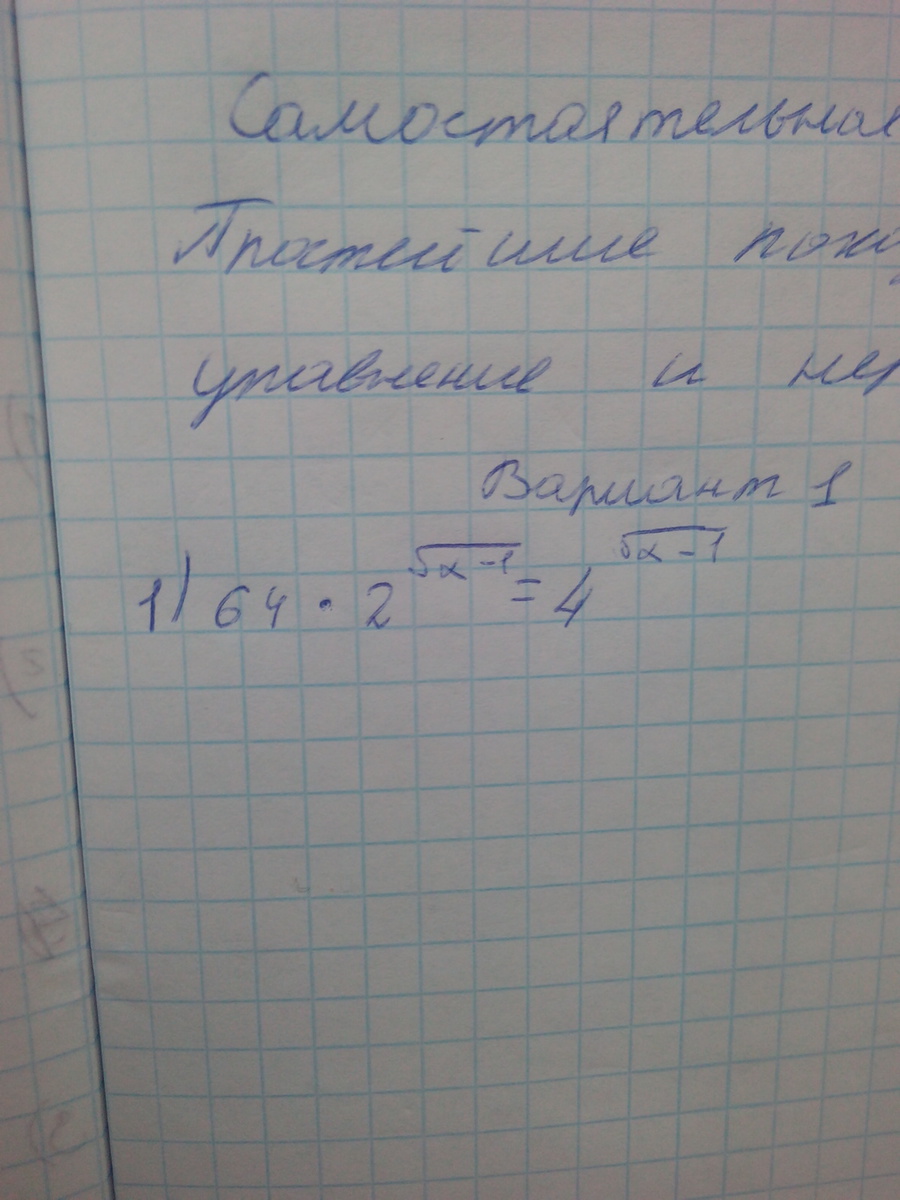 Самостоятельная
Простейшие пока
уравнение и нер
Вариант 1
1) 64 · 2^√x-1 = 4^√x-1